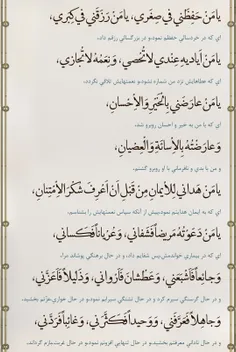 يامَنْ حَفِظَني في صِغَري، يامَنْ رَزَقَني في كِبَري،
ای که در خردسالی حفظم نمود و در بزرگسالی رزقم داد.
يامَنْ اَياديهِ عِنْدي لاتُحْصي، وَنِعَمُهُ لاتُجازي،
ای که عطاهایش نزد من شماره نشود و نعمتهایش تلافی نگردد.
يامَنْ عارَضَني بِالْخَيْرِ وَالاِْحْسانِ،
ای که با من به خیر و احسان روبرو شد.
وَعارَضْتُهُ بِالاِْسائَةِ وَالْعِصْيانِ،
و من با بدی و نافرمانی با او روبرو گشتم.
يامَنْ هَداني لِلاْيمانِ مِنْ قَبْلِ اَنْ اَعْرِفَ شُكْرَ الاِْمْتِنانِ،
ای که به ایمان هدایتم نمود پیش از آنکه سپاس نعمتهایش را بشناسم.
يامَنْ دَعَوْتُهُ مَريضاً فَشَفاني، وَعُرْياناً فَكَساني،
ای که در بیماری خواندمش پس شفایم داد، و در حال برهنگی پوشاند مرا.
وَجائِعاً فَاَشْبَعَني، وَعَطْشانَ فَاَرْواني، وَذَليلاً فَاَعَزَّني،
و در حال گرسنگی سیرم کرد و در حال تشنگی سیرابم نمود و در حال خواری عزتم بخشید.
وَجاهِلاً فَعَرَّفَني، وَوَحيداً فَكَثَّرَني، وَغائِباً فَرَدَّني،
و در حال نادانی معرفتم بخشید و در حال تنهایی افزونم نمود و در حال غربت بازم گرداند.